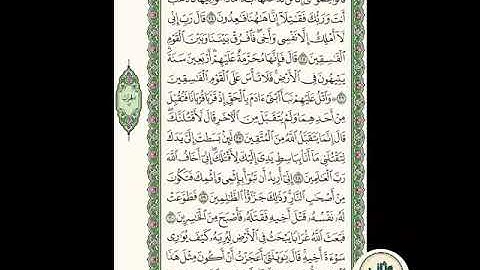 أَنتَ وَرَبُّكَ فَقَٰتِلَآ إِنَّا هَٰهُنَا قَٰعِدُونَ ٢٤ قَالَ رَبِّ إِنِّى
لَآ أَمْلِكُ إِلَّا نَفْسِى وَأَخِى فَٱفْرُقْ بَيْنَنَا وَبَيْنَ ٱلْقَوْمِ
ٱلْفَٰسِقِينَ ٢٥ قَالَ فَإِنَّهَا مُحَرَّمَةٌ عَلَيْهِمْ أَرْبَعِينَ سَنَةً
يَتِيهُونَ فِى ٱلْأَرْضِ فَلَا تَأْسَ عَلَى ٱلْقَوْمِ ٱلْفَٰسِقِينَ
٢٦ وَٱتْلُ عَلَيْهِمْ نَبَأَ ٱبْنَىْ ءَادَمَ بِٱلْحَقِّ إِذْ قَرَّبَا قُرْبَانًا فَتُقُبِّلَ
مِنْ أَحَدِهِمَا وَلَمْ يُتَقَبَّلْ مِنَ ٱلْءَاخَرِ قَالَ لَأَقْتُلَنَّكَ
قَالَ إِنَّمَا يَتَقَبَّلُ ٱللَّهُ مِنَ ٱلْمُتَّقِينَ ٢٧ لَئِنۢ بَسَطتَ إِلَىَّ يَدَكَ
لِتَقْتُلَنِى مَآ أَنَا۠ بِبَاسِطٍ يَدِىَ إِلَيْكَ لِأَقْتُلَكَ إِنِّىٓ أَخَافُ ٱللَّهَ
رَبَّ ٱلْعَٰلَمِينَ ٢٨ إِنِّىٓ أُرِيدُ أَن تَبُوٓأَ بِإِثْمِى وَإِثْمِكَ فَتَكُونَ
مِنْ أَصْحَٰبِ ٱلنَّارِ وَذَٰلِكَ جَزَٰٓؤُا۟ ٱلظَّٰلِمِينَ ٢٩ فَطَوَّعَتْ
لَهُۥ نَفْسُهُۥ قَتْلَ أَخِيهِ فَقَتَلَهُۥ فَأَصْبَحَ مِنَ ٱلْخَٰسِرِينَ ٣٠
فَبَعَثَ ٱللَّهُ غُرَابًا يَبْحَثُ فِى ٱلْأَرْضِ لِيُرِيَهُۥ كَيْفَ يُوَٰرِى
سَوْءَةَ أَخِيهِ قَالَ يَٰوَيْلَتَىٰٓ أَعَجَزْتُ أَنْ أَكُونَ مِثْلَ هَٰذَا